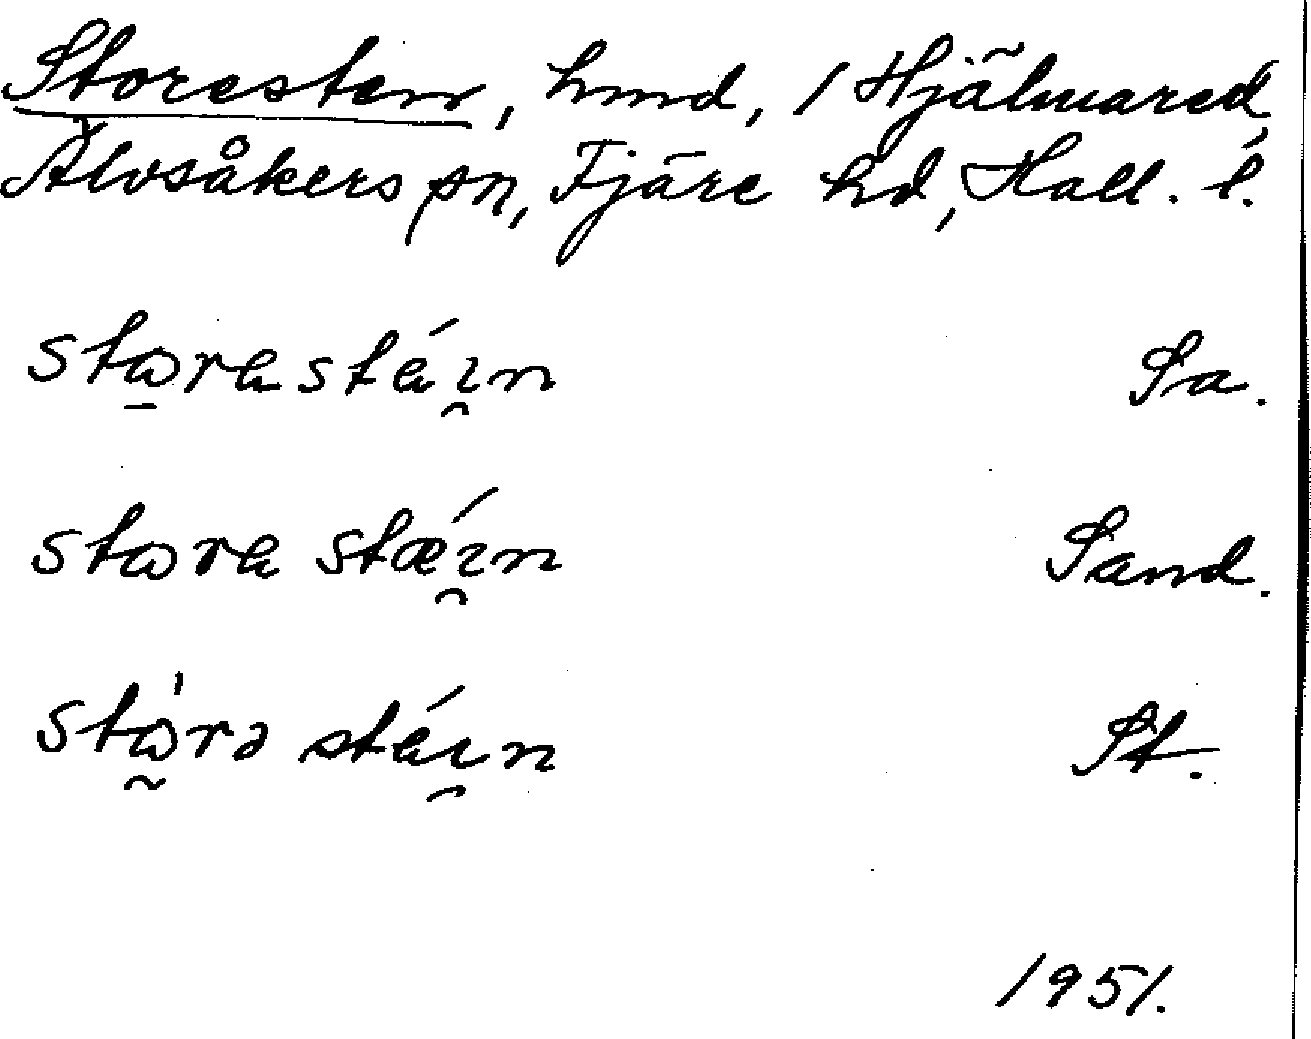 Storesten, hmd, 1 Hjälmared,
Älvsåkers sn, Fjäre hd, Hall. l.
stɷ̠ra stáı̯n Sa.
stɷra stǽı̯n Sand.
stɷ̰̀rə stáı̯n St.
1951.